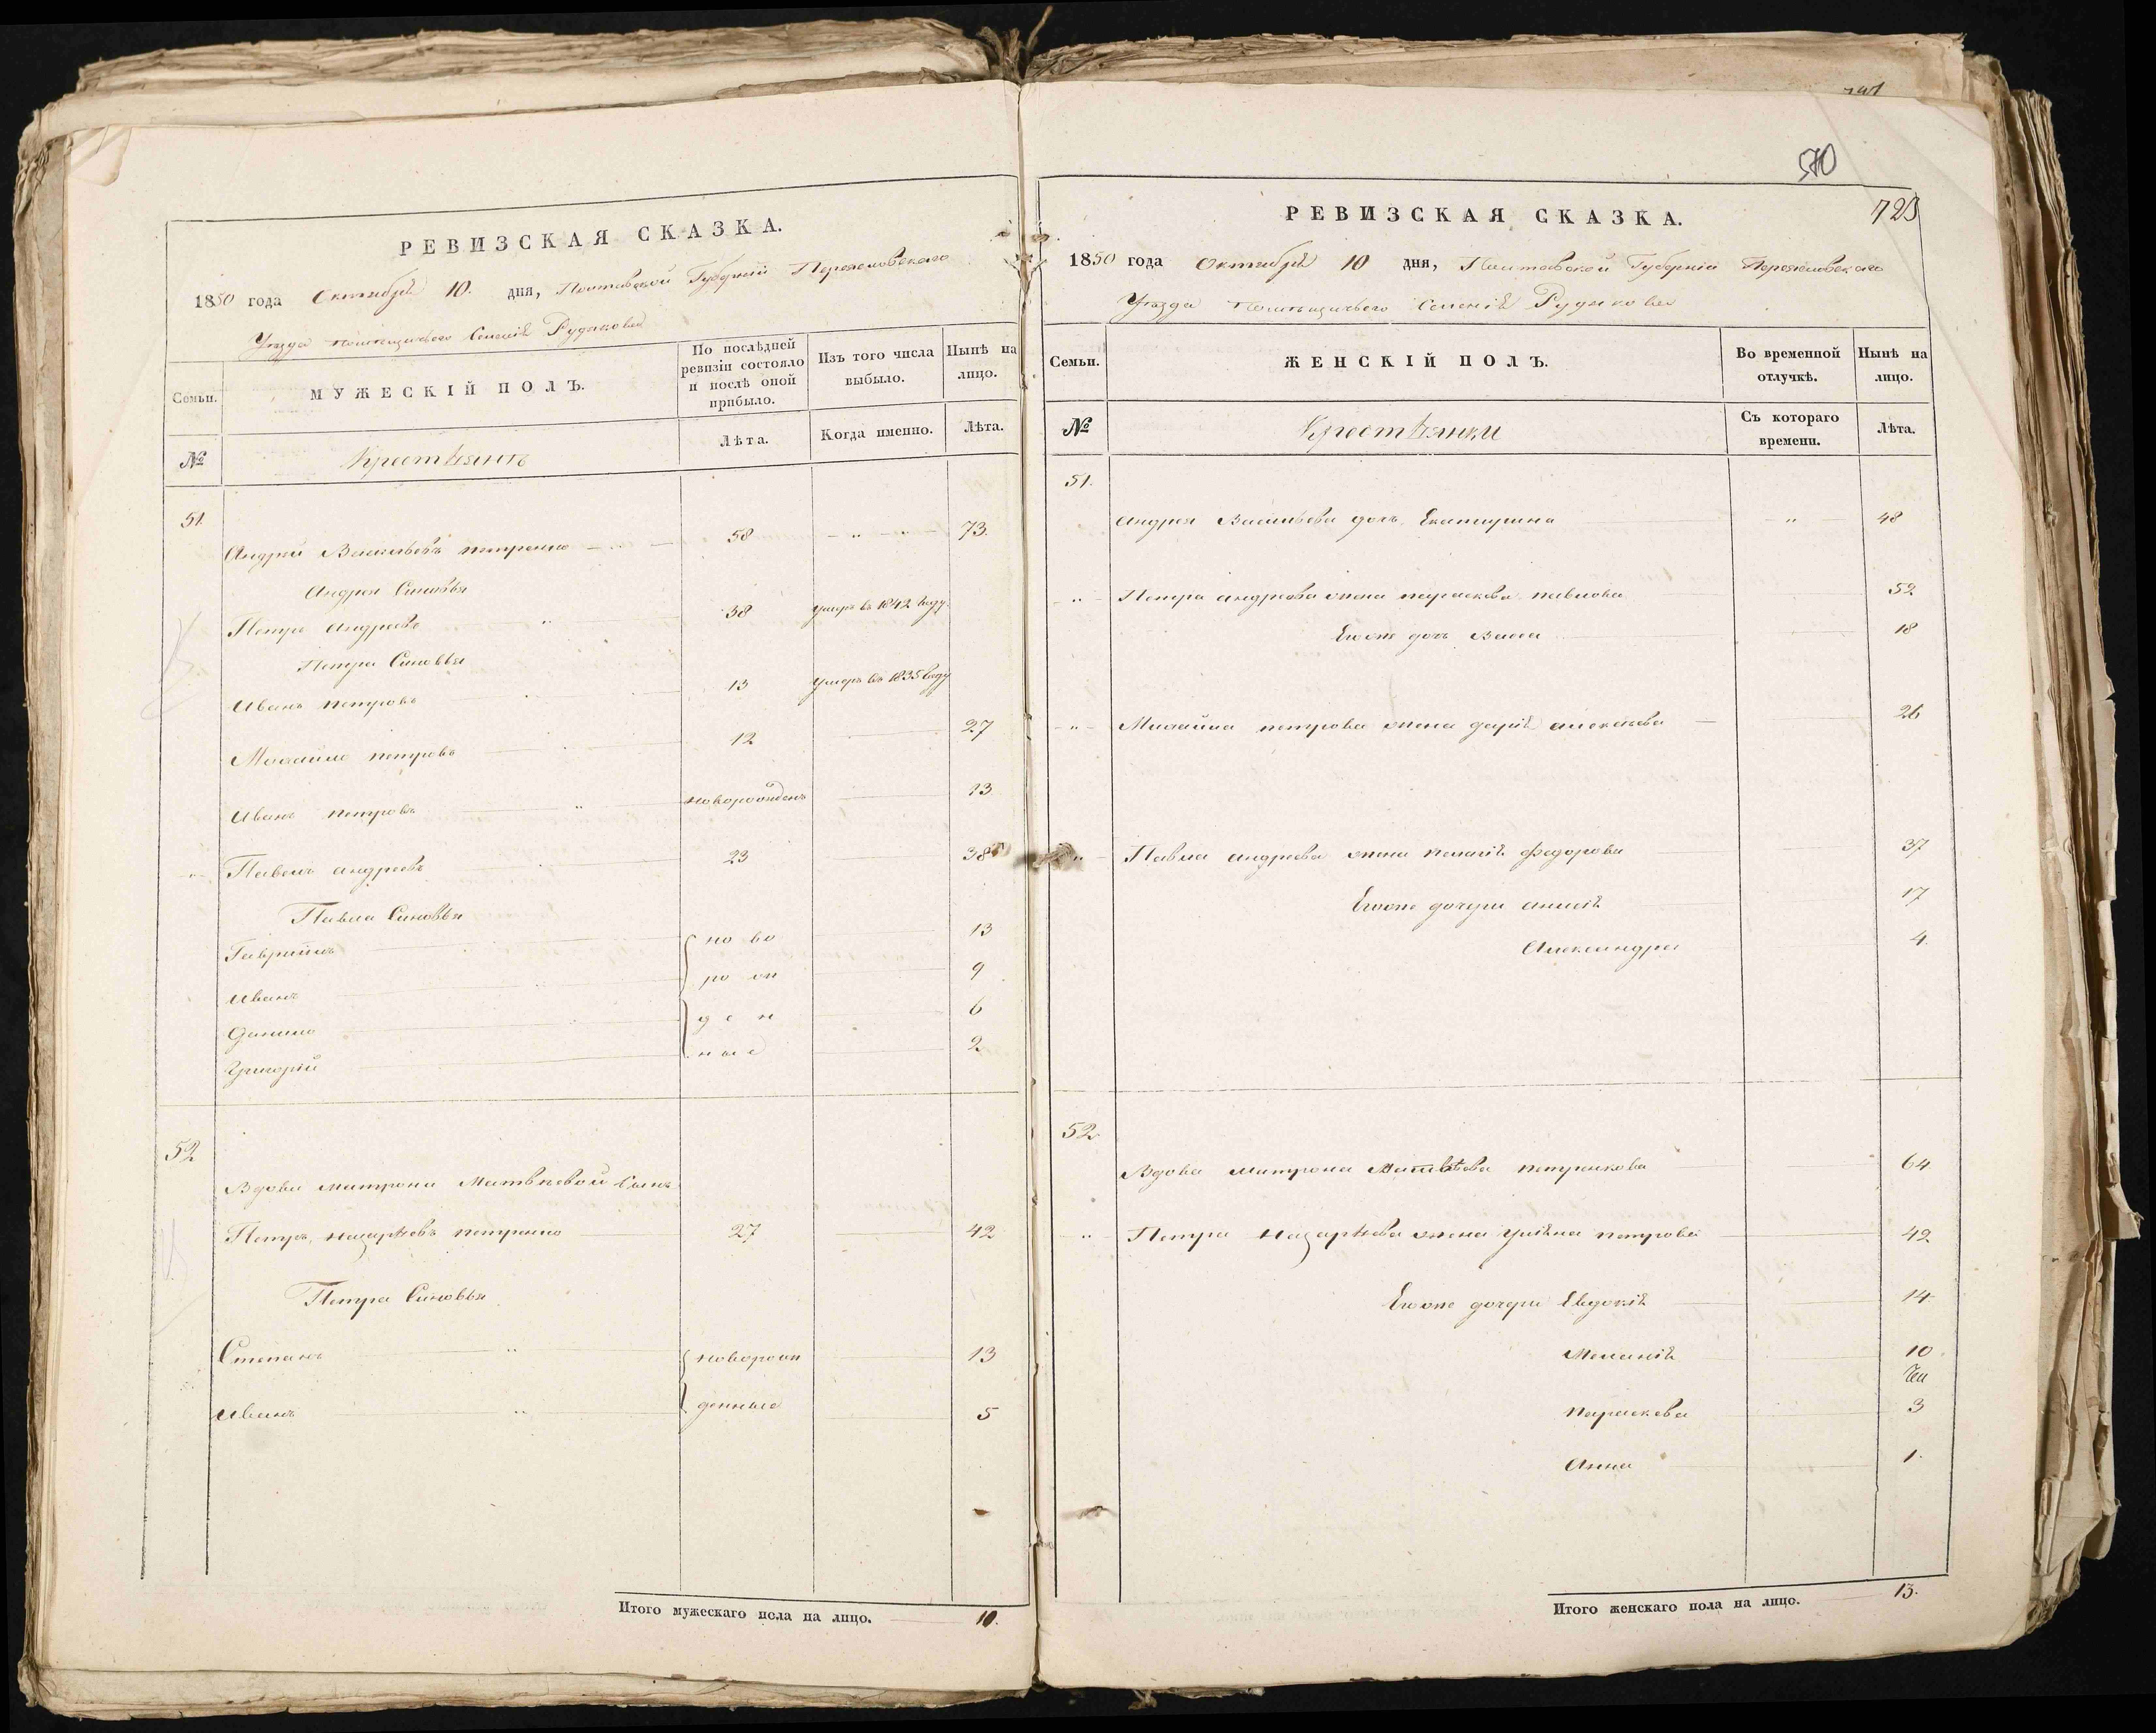 РЕВИЗСКАЯ СКАЗКА.
1850 года Октября 10. дня, Полтавской Губернии Переяславскаго
Уезда помещичьего Селенiя Рудяковъ
Семьи.
МУЖЕСКІЙ ПОЛЪ.
По послѣдней ревизіи состояло и послѣ оной прибыло.
Изъ того числа выбыло.
Нынѣ на лицо.
№
Крестьянъ
Лѣта.
Когда именно.
Лѣта.
51.
Андрей Васильевъ петренко 58 73.
Андрея Синовья
Петръ Андреевъ 38 умеръ въ 1842 году.
Петра Синовья
Иванъ петровъ 13 умеръ въ 1835 году
Михайло петровъ 12 27
Иванъ петровъ новорожденъ 13
Павелъ андреевъ 23 38
Павла Синовья
Гаврiилъ но во 13
Иванъ ро ж 9
Данило д е н 6
Григорiй ные 2
52
Вдовы матроны Матвѣевой Сынъ
Петръ, назарѣевъ петренко 27 42
Петра Синовья
Степанъ новорож 13
Иванъ денные 5
Итого мужескаго пола на лицо. 10.
570
723
РЕВИЗСКАЯ СКАЗКА.
1850 года Октября 10 дня, Полтавской Губернiи Переяславскаго
Уезда помещичьего Селенiя Рудяковъ
Семьи.
ЖЕНСКІЙ ПОЛЪ.
Во временной отлучкѣ.
Нынѣ на лицо.
№
Крестьянки
Съ котораго времени.
Лѣта.
51.
Андрея Васильева дочь Екатирина 48
Петра андреева жена параскева павлова 52
Егоже дочь Васса 18
Михайла петрова жена дарiя алексеева 26
Павла андреева жена пелагiя федорова 37
Егоже дочери анисiя 17
Александра 4
52
Вдова матрона Матвѣева петренкова 64
Петра назарѣева жена улiяна петрова 42
Егоже дочери Евдокiя 14
Меланiя 10
параскева 3
Анна 1.
Итого женскаго пола на лицо. 13.